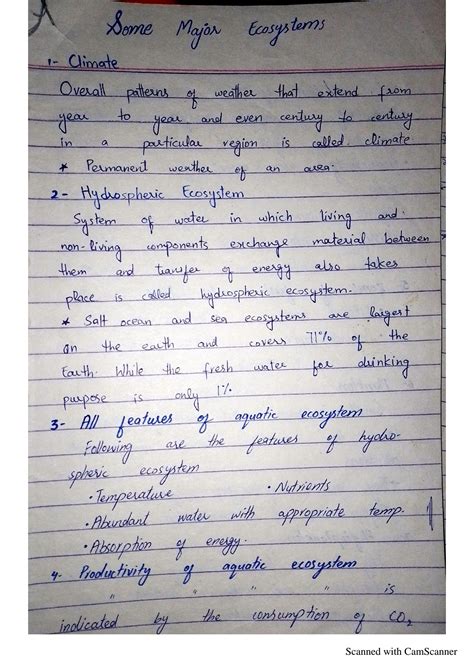 Some Major Ecosystems
1- Climate
Overall patterns of weather that extend from
year to year and even century to century
in a particular region is called climate.
* Permanent weather of an area.
2- Hydrospheric Ecosystem
System of water in which living and
non-living components exchange material between
them and transfer of energy also takes
place is called hydrospheric ecosystem.
* Salt ocean and sea ecosystems are largest
on the earth and covers 71% of the
Earth. While the fresh water for drinking
purpose is only 1%
3- All features of aquatic ecosystem
Following are the features of hydro-
spheric ecosystem
• Temperature • Nutrients
• Abundant water with appropriate temp.
• Absorption of energy.
4- Productivity of aquatic ecosystem
" " " is
indicated by the consumption of CO2
Scanned with CamScanner